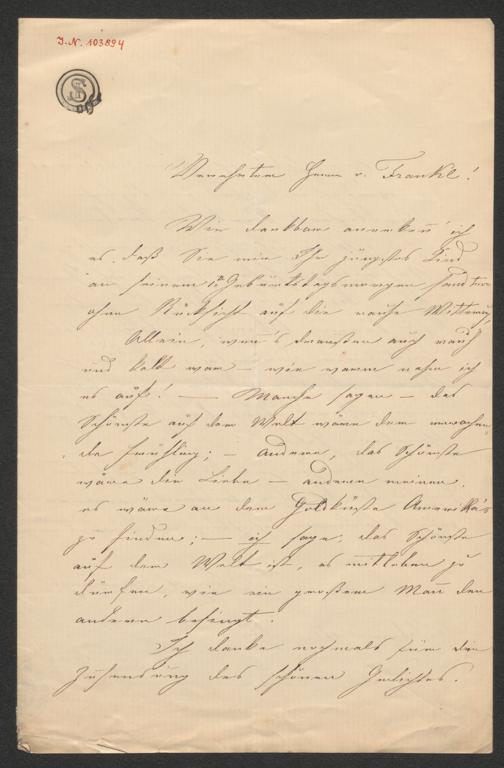 I.N. 103894
S
Verehrtem Herrn v. Frankl!
Wie dankbar anerkenn' ich
es, daß Sie mir Ihr jüngstes Kind
an seinem Geburtstagsmorgen sandten
ohne Rücksicht auf die rauhe Witterung,
Allein, wenn's draußen auch rauh
und kalt war – wie warm nahm ich
es auf! — Manche sagen – das
Schönste auf der Welt wäre der erwachen-
de Frühling; – andere, das Schönste
wäre die Liebe – andere meinen,
es wäre an der Goldküste Amerika's
zu finden; – ich sage, das Schönste
auf der Welt ist, es mitleben zu
dürfen, wie ein großer Mann den
andern besingt.
Ich danke nochmals für die
Zusendung des schönen Gedichtes.